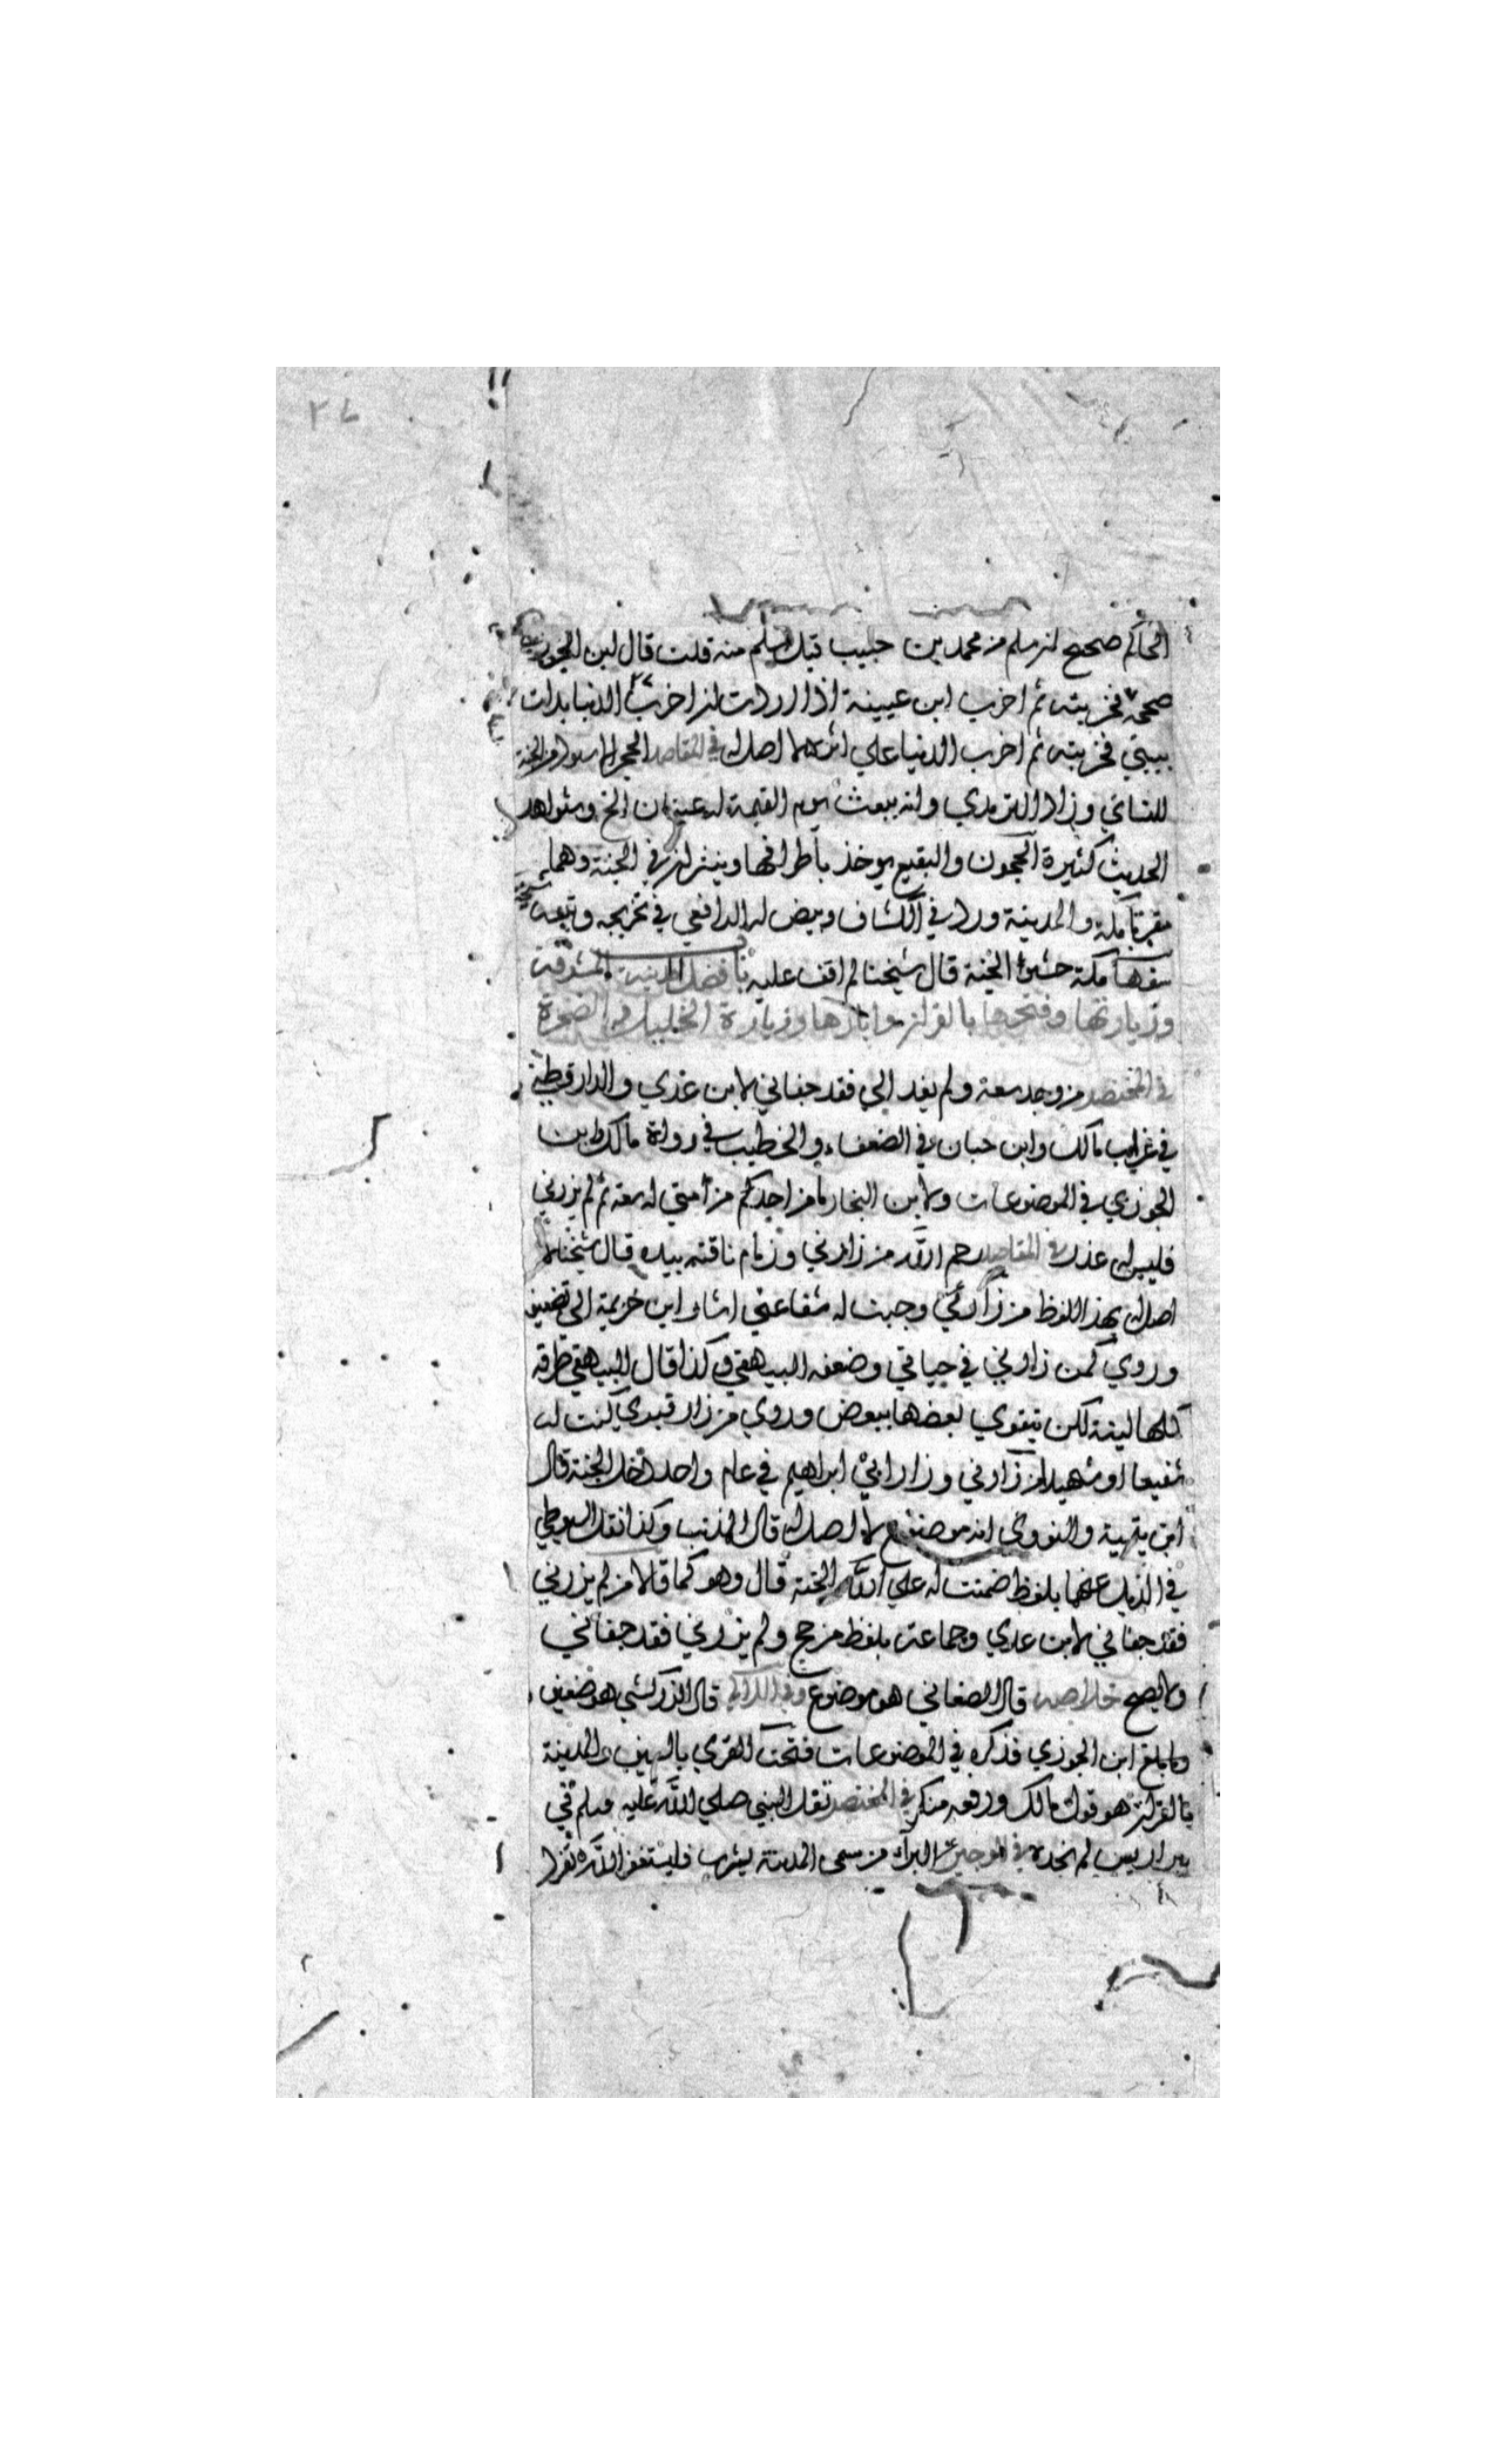 ٢٦
الحاكم صحيح ان سلم من محمد بن حبيب قيل سلم منه قلت قال ابن الجوزي
صححه فخربته ثم اخرب ابن عيينة اذا اردت ان اخرب الدنيا بدات
ببيتي فخربته ثم اخرب الدنيا علي اثره لا اصل له في المقاصد الحجر الاسود من الجنة
للنسائي وزاد الترمذي وانه يبعث يوم القيمة له عينان الخ وشواهد
الحديث كثيرة الحجون والبقيع يوخذ باطرافها وينثران في الجنة وهما
مقبرتا مكة والمدينة ورد في الكشاف وبيض له الرافعي في تخريجه وتبعه
سفهاء مكة حشو الجنة قال شيخنا لم اقف عليه باب فضل المدينة المشرفة
وزيارتها وفتحها بالقران وابارها وزيارة الخليل والصخرة
في المختصر من وجد سعة ولم يفد الي فقد جفاني لابن عدي والدارقطني
في غرايب مالك وابن حبان في الضعفاء والخطيب في رواة مالك بن
الجوزي في الموضوعات ولابن النجار ما من احدكم من امتي له سعة ثم لم يزرني
فليس له عذر في المقاصد رحم الله من زارني وزمام ناقته بيده قال شيخنا لا
اصل له بهذا اللفظ من زارني وجبت له شفاعتي اشار ابن خزيمة الى تضعيفه
وروي كمن زارني في حياتي وضعفه البيهقي وكذا قال البيهقي طرقه
كلها لينة لكن يتقوي بعضها ببعض وروي من زار قبري كنت له
شفيعا او شهيدا من زارني وزار ابي ابراهيم في عام واحد دخل الجنة قال
ابن تيمية والنووي انه موضوع لا اصل له قال المذنب وكذا نقل السيوطي
في الذيل عنهما بلفظ ضمنت له علي الله الجنة قال وهو كما قالا من لم يزرني
فقد جفاني لابن عدي وجماعة بلفظ من حج ولم يزرني فقد جفاني
ولا يصح خلاصه قال الصغاني هو موضوع وفي اللالي قال الزركشي هو ضعيف
وبالغ ابن الجوزي فذكره في الموضوعات فتحت القري بالسيف والمدينة
بالقران هو قول مالك ورفعه منكر في المختصر تفل النبي صلي الله عليه وسلم في
بير اريس لم نجده في الوجيز البراء من سمى المدينة يثرب فليستغفر الله